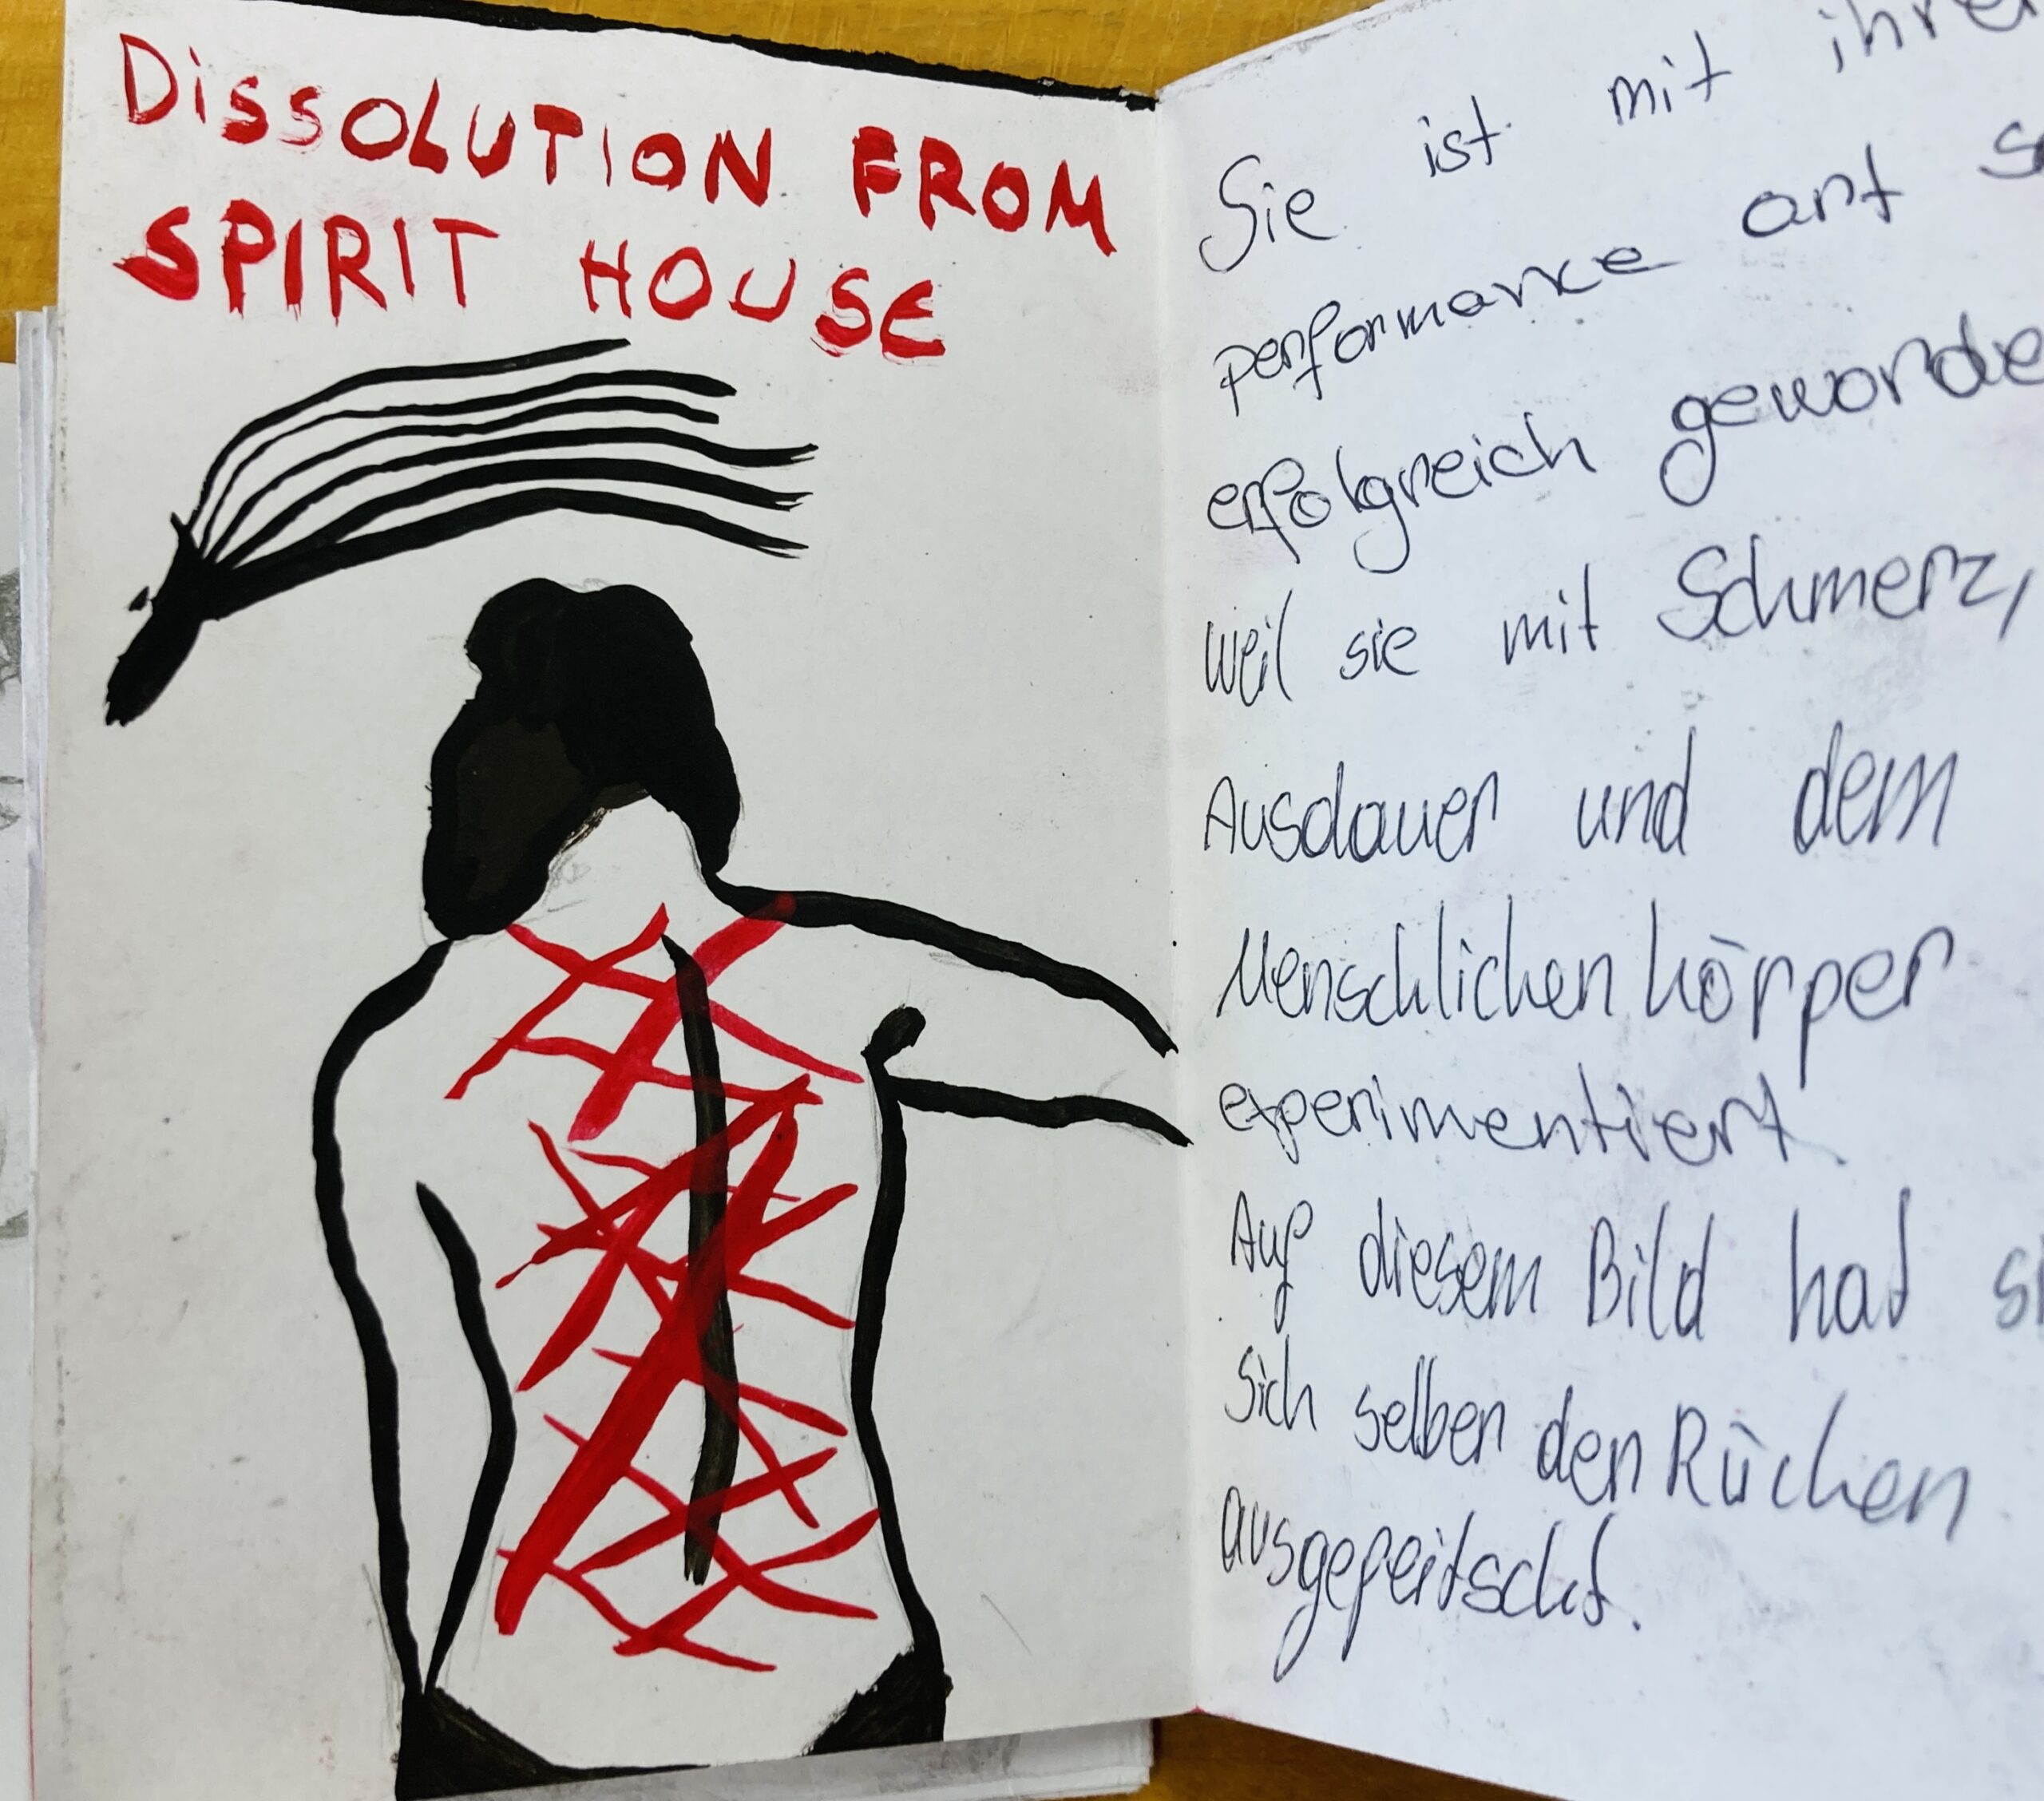 DISSOLUTION FROM
SPIRIT HOUSE
Sie ist mit
performance art
erfolgreich
weil sie mit Schmerz,
Ausdauer und dem
Menschlichen körper
experimentiert.
Auf diesem Bild hat
sich selber den Rücken
ausgepeitscht.